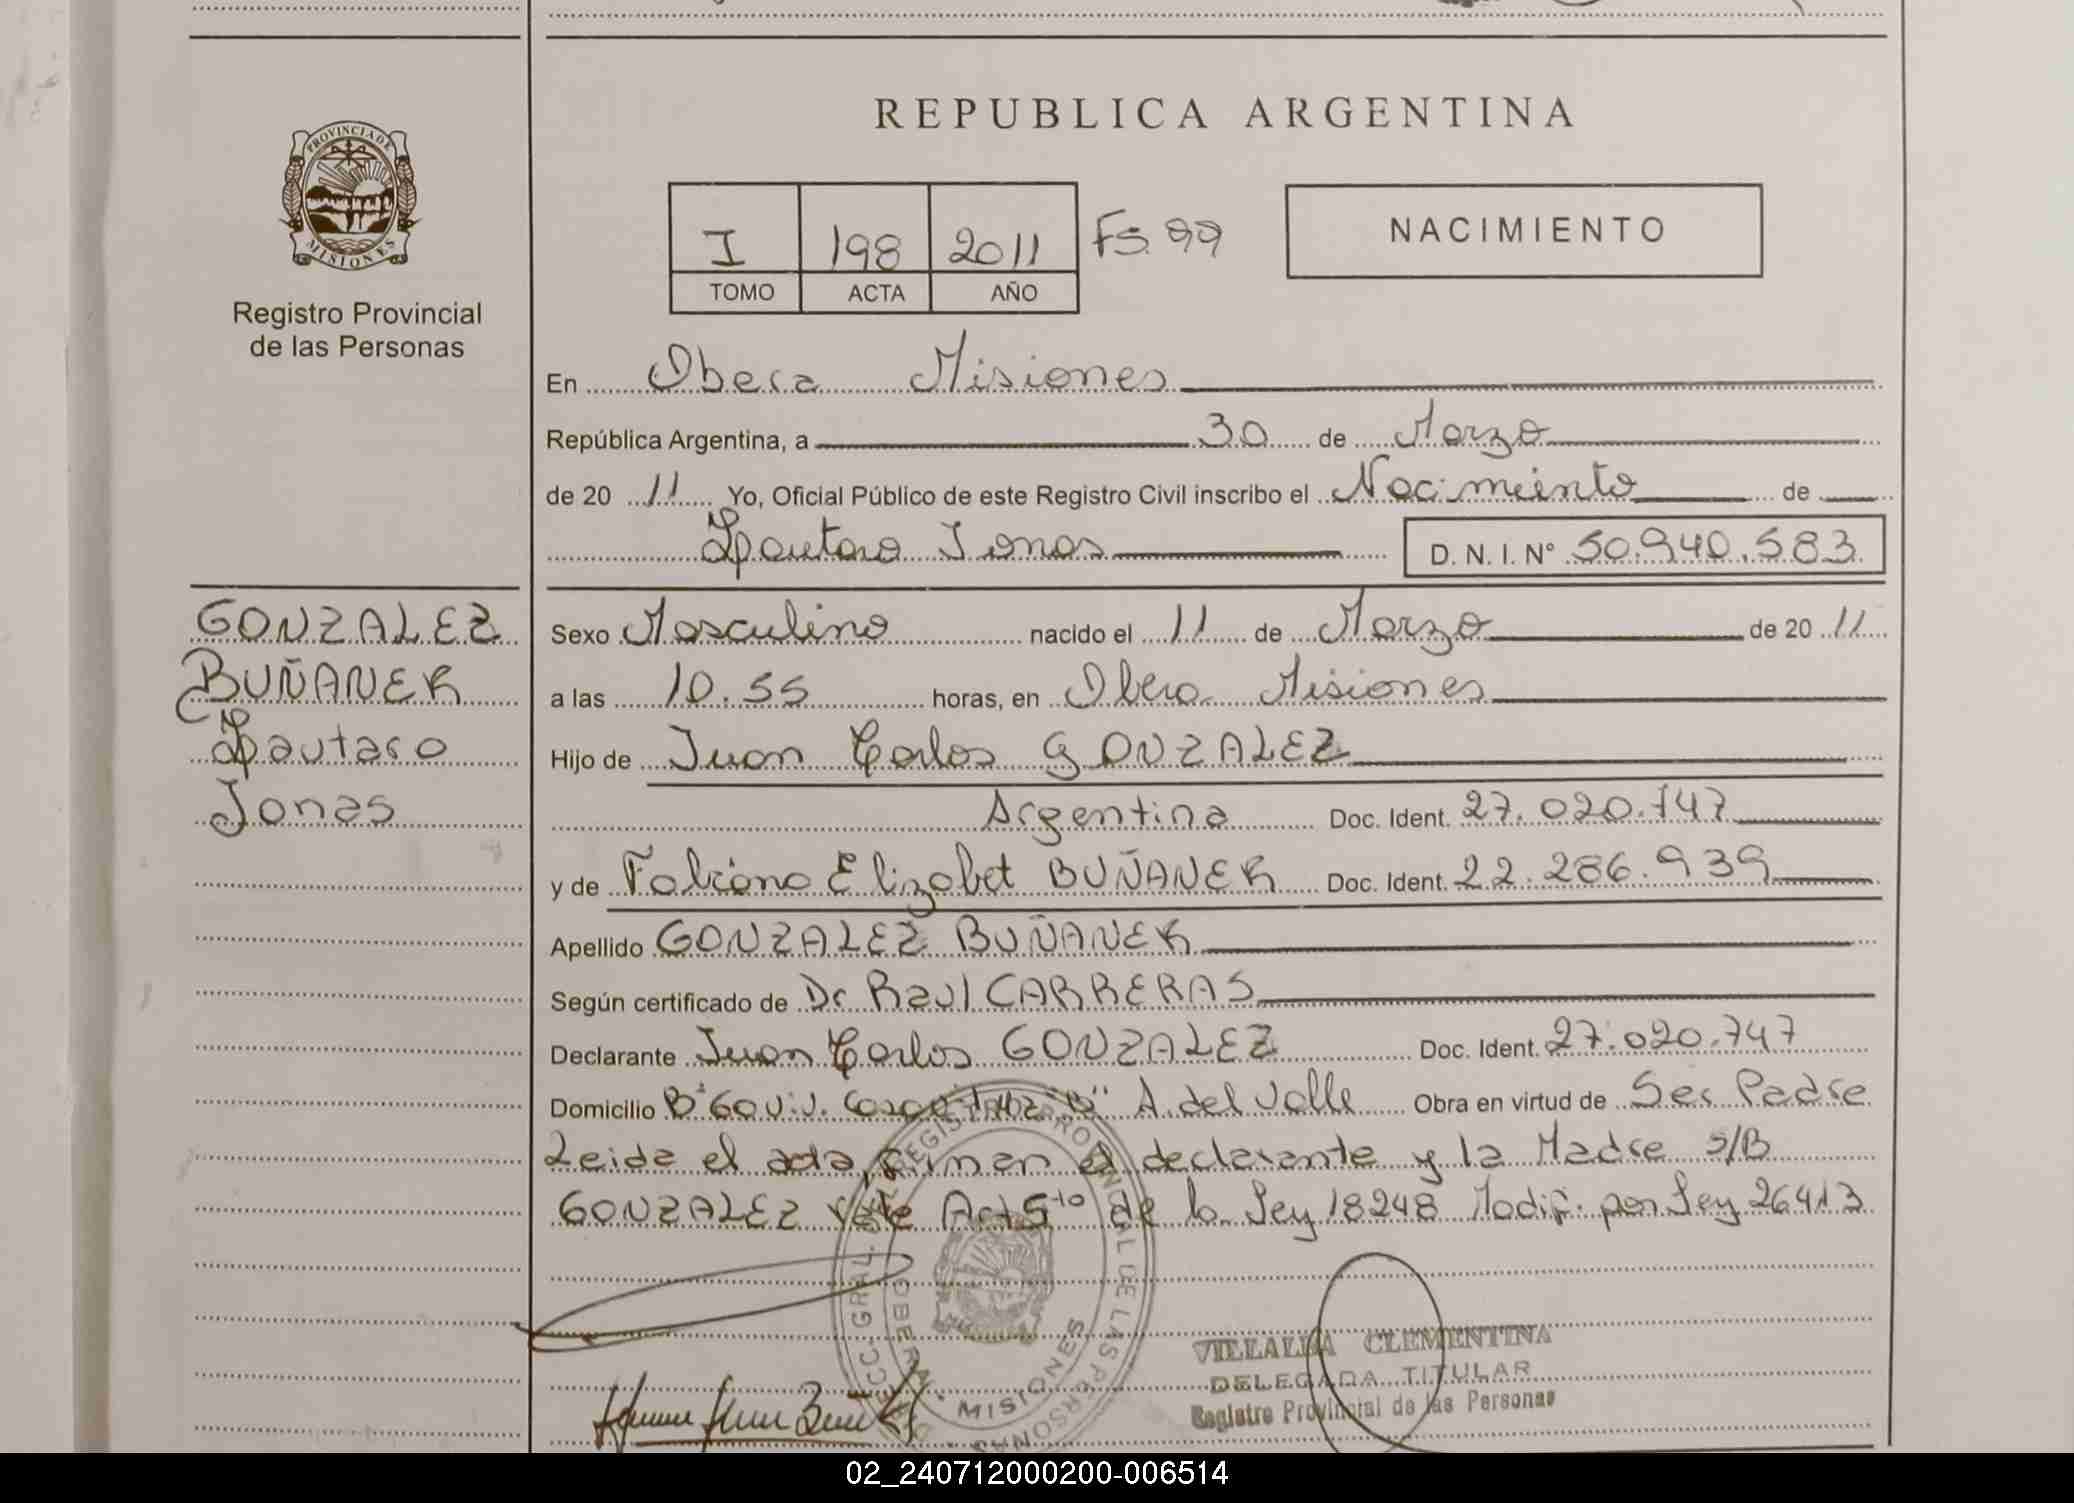 REPUBLICA ARGENTINA
PROVINCIA DE
MISIONES
Registro Provincial
de las Personas
I 198 2011 Fs. 99
TOMO ACTA AÑO
NACIMIENTO
En Obera Misiones
República Argentina, a 30 de Marzo
de 20 11 Yo, Oficial Público de este Registro Civil inscribo el Nacimiento de
Lautaro Jonas D. N. I. N° 50.940.583
GONZALEZ
BUÑANER
Lautaro
Jonas
Sexo Masculino nacido el 11 de Marzo de 20 11
a las 10.55 horas, en Obera Misiones
Hijo de Juan Carlos GONZALEZ
Argentina Doc. Ident. 27.020.747
y de Fabiana Elizabet BUÑANER Doc. Ident. 22.286.939
Apellido GONZALEZ BUÑANER
Según certificado de Dr Raul CARRERAS
Declarante Juan Carlos GONZALEZ Doc. Ident. 27.020.747
Domicilio B° A. del Valle Obra en virtud de Ser Padre
Leida el acta, firman el declarante y la Madre S/B
GONZALEZ vale Art 5to de la Ley 18248 Modif. por Ley 26413
MISIONES
VILLALBA CLEMENTINA
DELEGADA TITULAR
Registro Provincial de las Personas
02_240712000200-006514